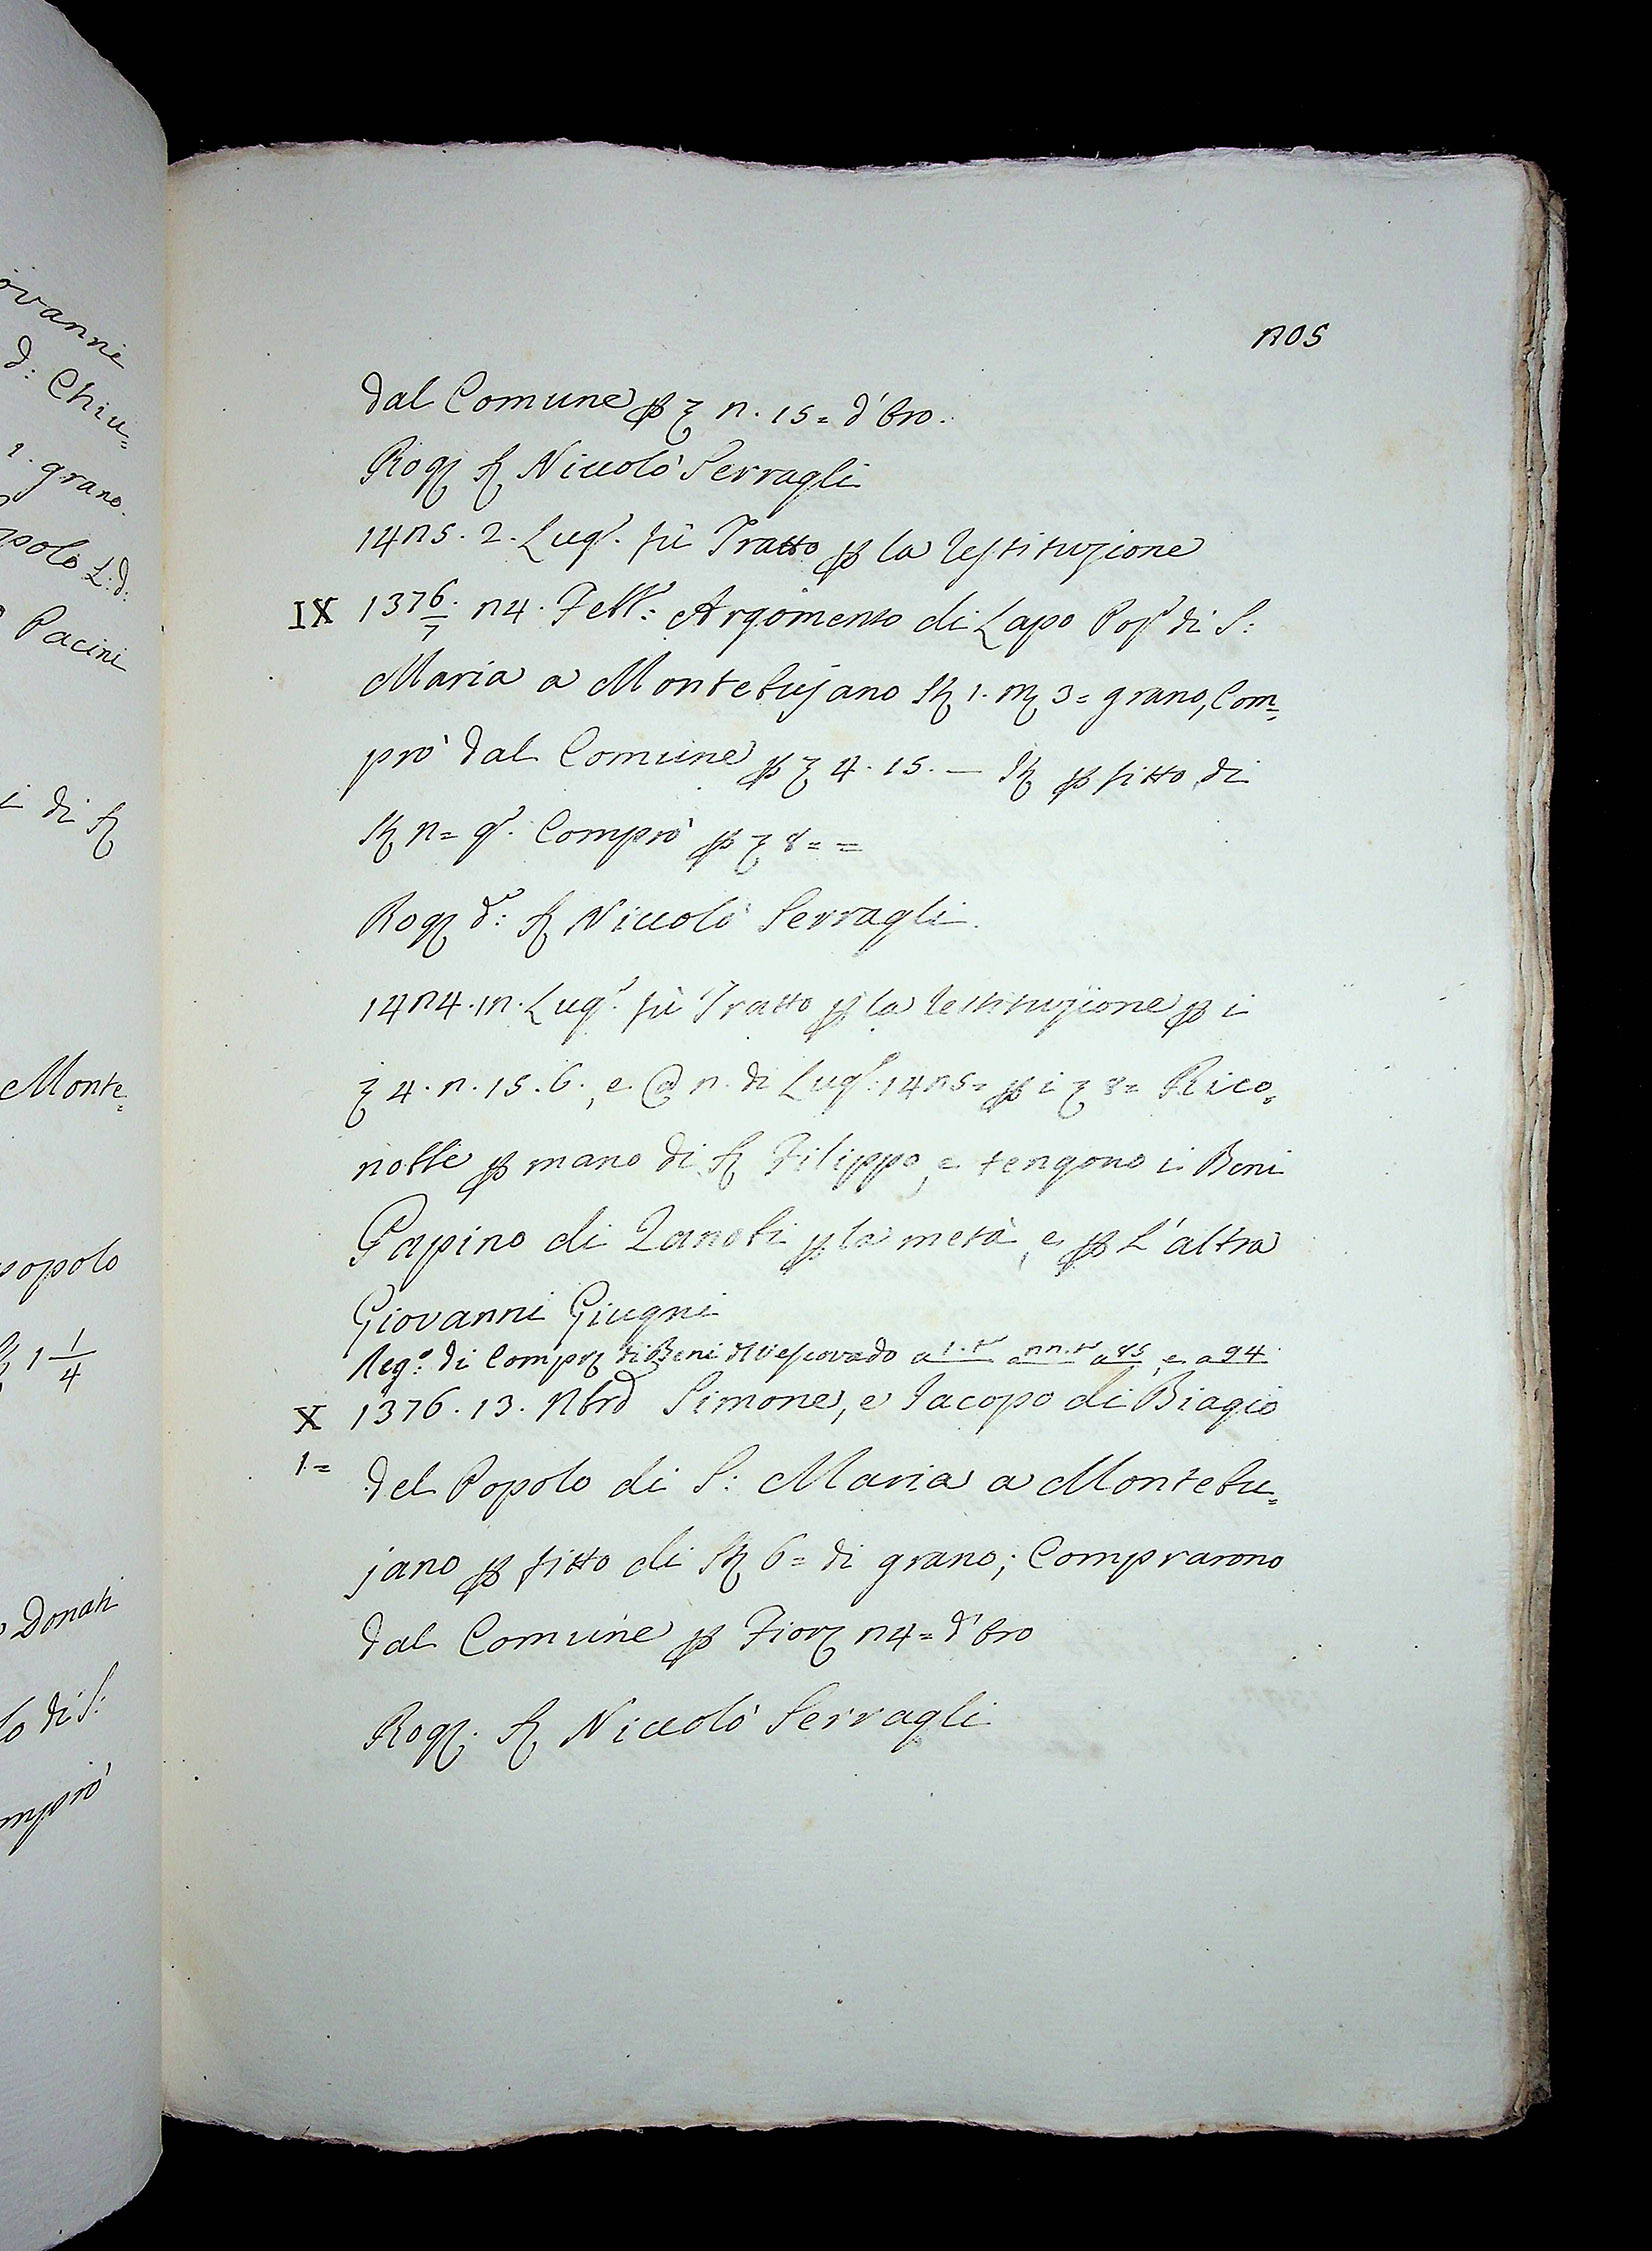 ovanne
d: Chiu=
1. grano.
opolo L: d:
Pacini
i di S
Monte=
popolo
1 1/4
Donati
lo di S:
mprò
205
dal Comune p 2. 15= d'Oro.
Rog Niccolò Serragli
1425. 2. Lug. fù Tratto p la restituzione
IX 1376/7. 24. Febb: Argomento di Lapo Pop di S:
Maria a Montebujano St 1. m 3= grano, Com=
prò dal Comune p 4. 15. — St p fitto di
St 2= g. Comprò p 8= =
Rog d: Niccolò Serragli.
1424. 12. Lug. fù Tratto p la restituzione p i
4. 2. 15. 6., e @ 2. di Lug: 1425= p i 8= Rico=
nobbe p mano di S Filippo, e tengono i Beni
Papino di Zanobi p la metà, e p l'altra
Giovanni Giugni
Reg.o di Compre di Beni di Vescovado a 1. a 22. a 85, e a 94.
X 1376. 13. Nbre Simone, e Jacopo di Biagio
1=
del Popolo di S: Maria a Montebu=
jano p fitto di St 6= di grano; Comprarono
dal Comune p Fior 24= d'Oro
Rog. Niccolò Serragli